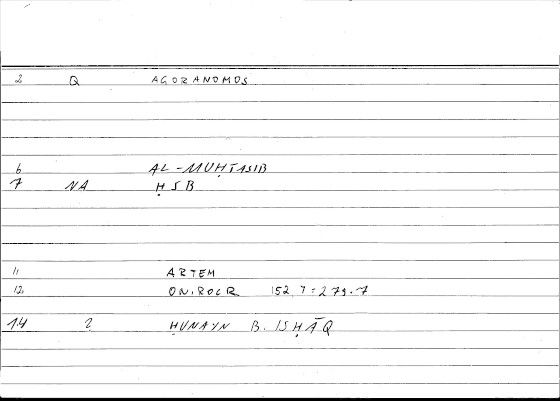 2 Q AGORANOMOS
6 AL-MUḤTASIB
7 NA ḤSB
11 ARTEM
12 ONIROCR 152.7=279.7
14 2 ḤUNAYN B. ISḤĀQ